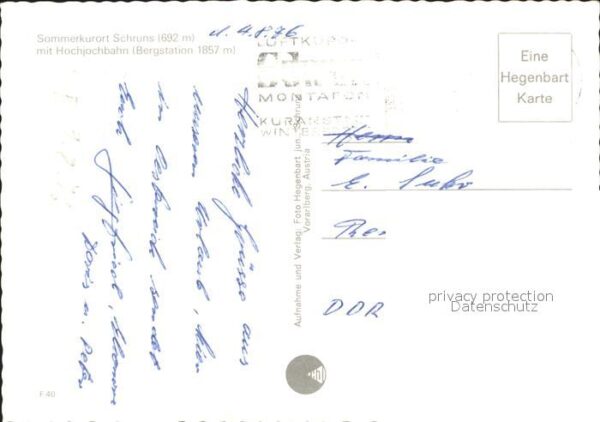 Sommerkurort Schruns (692 m)
mit Hochjochbahn (Bergstation 1857 m)
d. 4.8.76
LUFTKURORT
MONTAFON
KURANSTALT
Eine
Hegenbart
Karte
Herzliche Grüsse aus
unserem Urlaub, hier
in Österreich sendet
Euch
Doris u. Peter
Aufnahme und Verlag: Foto Hegenbart jun. Schruns
Vorarlberg, Austria
Herrn
Familie
E.
DDR
privacy protection
Datenschutz
F 40